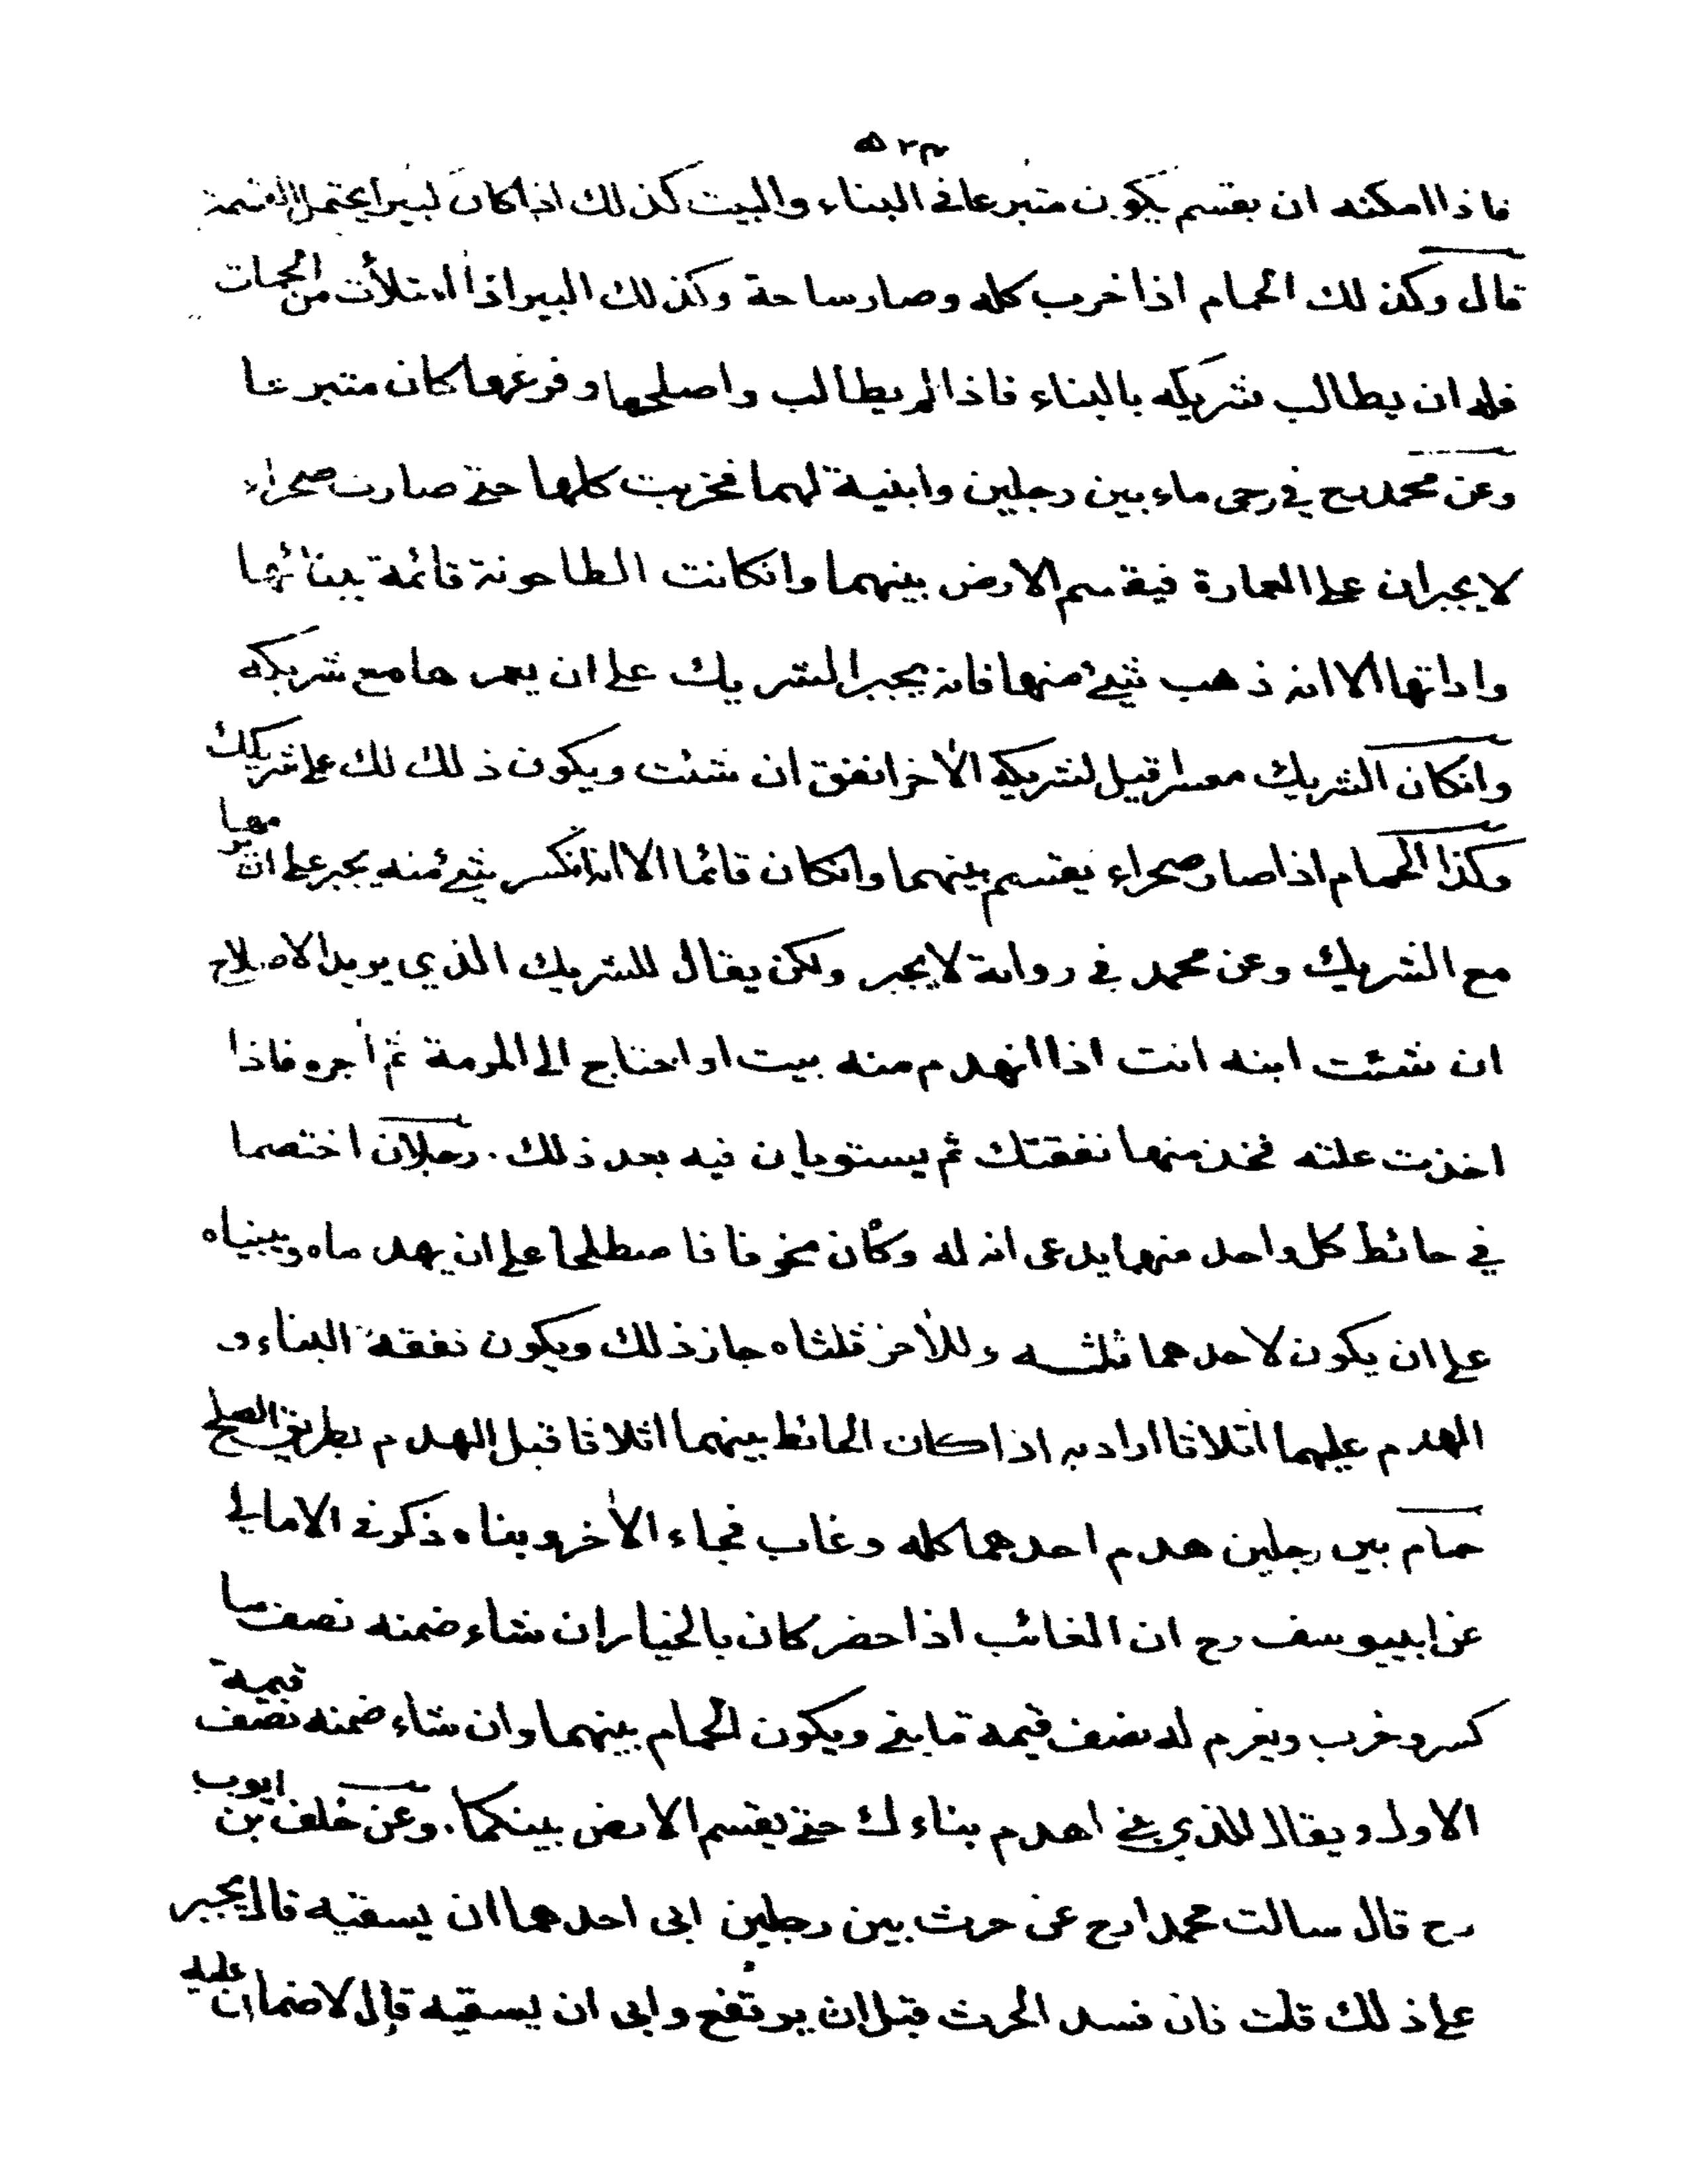 ٥٢٣
فاذا امكنه ان يقسم يكون متبرعا في البناء والبيت كذلك اذا كان كبيرا يحتمل القسمة
قال وكذلك الحمام اذا خرب كله وصار ساحة وكذلك البير اذا امتلأت من الحمات
فله ان يطالب شريكه بالبناء فاذا لم يطالب واصلحها وفرغها كان متبرعا
وعن محمد رح في رحى ماء بين رجلين وابنية لهما فخربت كلها حتى صارت صحراء
لا يجبران على العمارة فيقسم الارض بينهما وانكانت الطاحونة قائمة ببنائها
واداتها الا انه ذهب شيئ منها فانه يجبر الشريك على ان يعمرها مع شريكه
وانكان الشريك معسرا قيل لشريكه الاٰخر انفق ان شئت ويكون ذلك لك على شريكك
وكذا الحمام اذا صار صحراء يقسم بينهما وانكان قائما الا انه انكسر شيئ منه يجبر على ان يرمها
مع الشريك وعن محمد في رواية لا يجبر ولكن يقال للشريك الذي يريد الاصلاح
ان شئت ابنه انت اذا انهدم منه بيت او احتاج الى المرمة ثم اٰجره فاذا
اخذت غلته فخذ منها نفقتك ثم يستويان فيه بعد ذلك. رجلان اختصما
في حائط كل واحد منهما يدعى انه له وكان مخوفا فاصطلحا على ان يهدماه ويبنياه
على ان يكون لاحدهما ثلثه وللاٰخر ثلثاه جاز ذلك ويكون نفقة البناء و
الهدم عليهما اثلاثا اراد به اذا كان الحائط بينهما اثلاثا قبل الهدم بطريق الصلح
حمام بين رجلين هدم احدهما كله وغاب فجاء الاٰخر وبناه ذكر في الامالي
عن ابييوسف رح ان الغائب اذا حضر كان بالخيار ان شاء ضمنه نصف ما
كسر وخرب ويغرم له نصف قيمة ما بنى ويكون الحمام بينهما وان شاء ضمنه نصف قيمة
الاول ويقال للذي بنى اهدم بناءك حتى يقسم الارض بينكما. وعن خلف بن ايوب
رح قال سالت محمدا رح عن حرث بين رجلين ابى احدهما ان يسقيه قال يجبر
على ذلك قلت فان فسد الحرث قبل ان يرتفع وابى ان يسقيه قال لا ضمان عليه